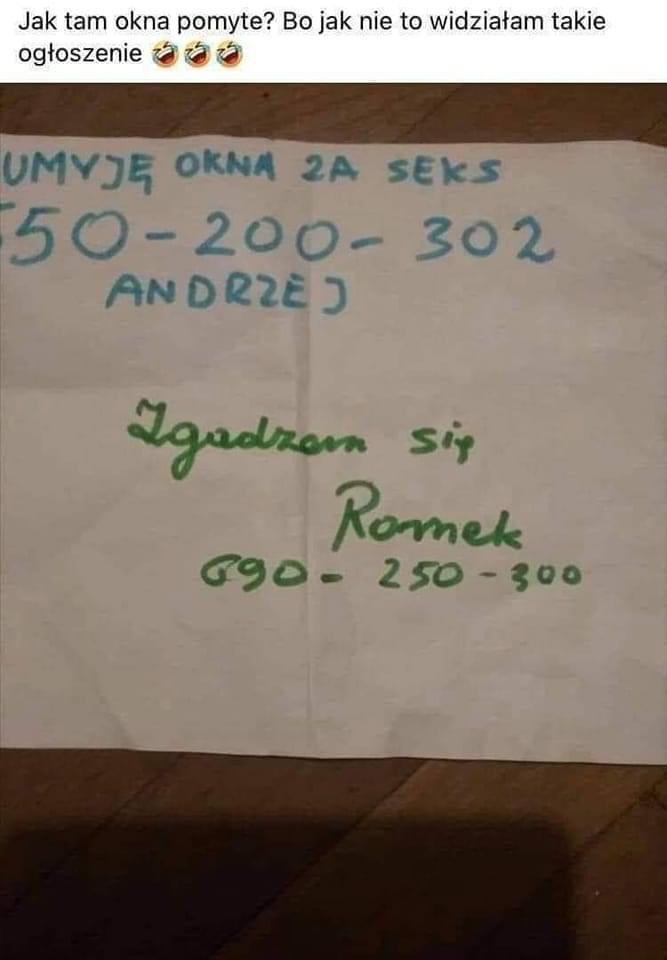 Jak tam okna pomyte? Bo jak nie to widziałam takie
ogłoszenie 🤣🤣🤣
UMYJĘ OKNA ZA SEKS
50-200-302
ANDRZEJ
Zgadzam się
Romek
690-250-300